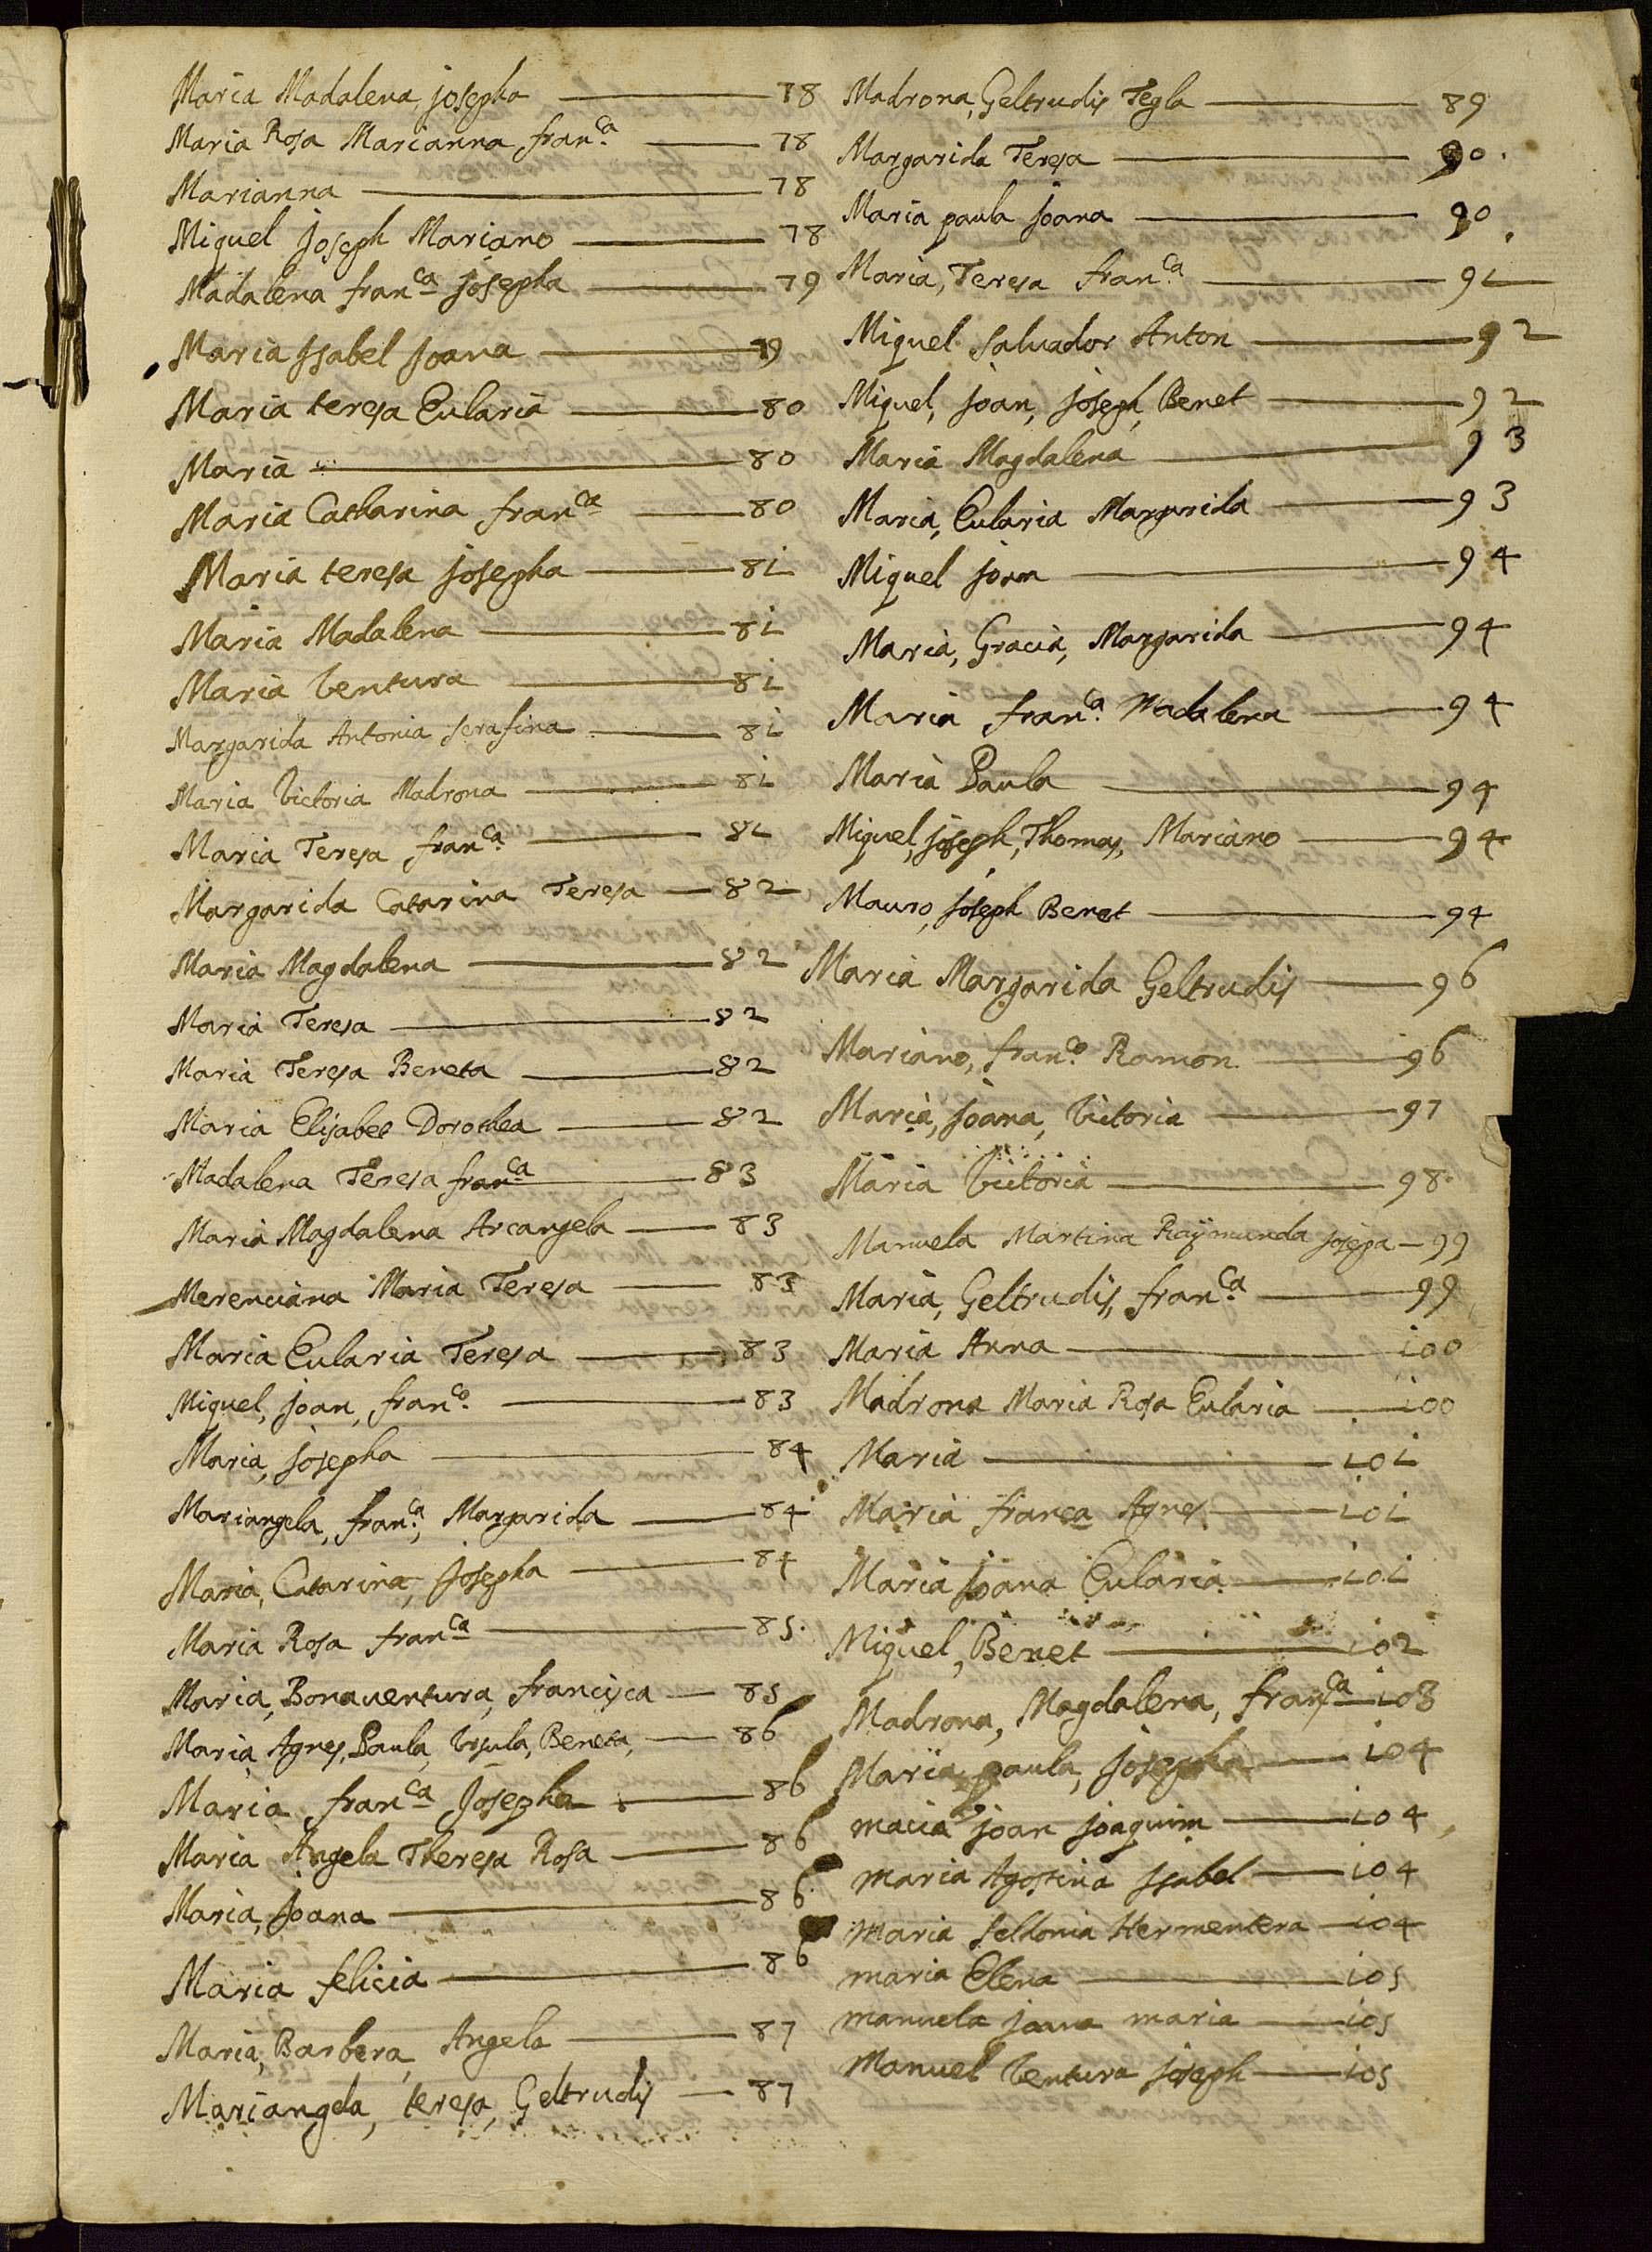 Maria Madalena josepha 78
Maria Rosa Marianna fran.ca 78
Marianna 78
Miquel joseph Mariano 78
Madalena fran.ca josepha 79
Maria Isabel Joana 79
Maria teresa Eularia 80
Maria 80
Maria Catharina fran.ca 80
Maria teresa josepha 81
Maria Madalena 81
Maria Ventura 81
Margarida Antonia serafina 81
Maria Victoria Madrona 81
Maria Teresa fran.ca 81
Margarida Catarina Teresa 82
Maria Magdalena 82
Maria Teresa 82
Maria Teresa Beneta 82
Maria Elisabet Dorothea 82
Madalena Teresa fran.ca 83
Maria Magdalena Arcangela 83
Merenciana Maria Teresa 83
Maria Eularia Teresa 83
Miquel, joan, fran.co 83
Maria, josepha 84
Mariangela, fran.ca, Margarida 84
Maria, Catarina, Josepha 84
Maria Rosa fran.ca 85.
Maria, Bonaventura, francisca 85
Maria, Agnes, Paula, Vrsula, Beneta, 86
Maria fran.ca Josepha 86
Maria Angela Theresa Rosa 86
Maria, Joana 86
Maria felicia 86
Maria, Barbera, Angela 87
Mariangela, teresa, Geltrudis 87
Madrona, Geltrudis Tegla 89
Margarida Teresa 90.
Maria paula Joana 90
Maria, Teresa fran.ca 91
Miquel salvador Anton 92
Miquel, joan, joseph, Benet 92
Maria Magdalena 93
Maria, Eularia Margarida 93
Miquel joan 94
Maria, Gracia, Margarida 94
Maria fran.ca Madalena 94
Maria Paula 94
Miquel, joseph, Thomas, Mariano 94
Mauro, joseph Benet 94
Maria Margarida Geltrudis 96
Mariano, fran.co Ramon 96
Maria, joana, Victoria 97
Maria Victoria 98.
Manuela Martina Raÿmunda josepa 99
Maria, Geltrudis, fran.ca 99
Maria Anna 100
Madrona Maria Rosa Eularia 100
Maria 101
Maria franca Agnes 101
Maria Joana Eularia 101
Miquel, Benet 102
Madrona, Magdalena, fran.ca 103
Maria, paula, josepha 104
macia joan joaquim 104
maria Agostina Isabel 104
maria Hermentera 104
maria Elena 105
manuela joana maria 105
Manuel Ventura joseph 105